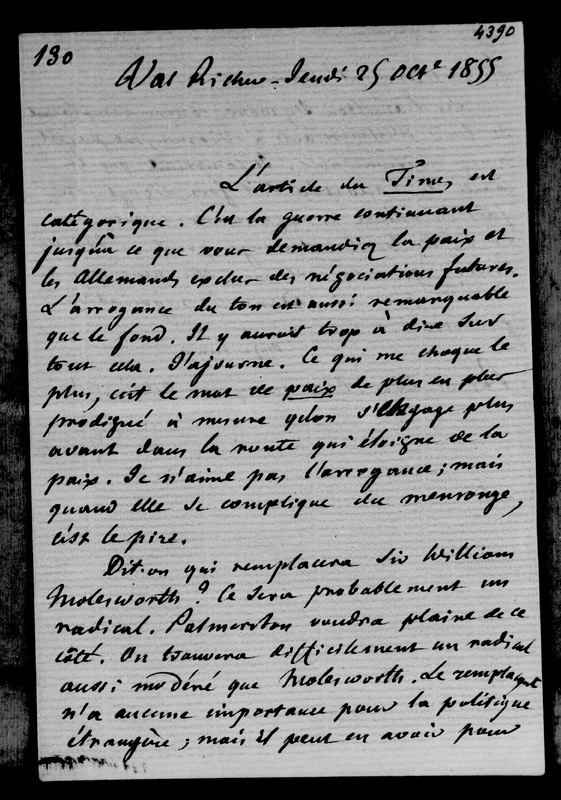 130
4390
Val Richer - Jeudi 25 Octe 1855
L'article du Times est
catégorique. C'est la guerre continuant
jusqu'à ce que vous demandiez la paix et
les Allemands exclus des négociations futures.
L'arrogance du ton est aussi remarquable
que le fond. Il y aurait trop à dire sur
tout cela. J'ajourne. Ce qui me choque le
plus, c'est le mot de paix de plus en plus
prodigué à mesure qu'on s'engage plus
avant dans la route qui éloigne de la
paix. Je n'aime pas l'arrogance ; mais
quand elle se complique du mensonge,
c'est le pire.
Dit-on qui remplacera Sir William
Molesworth ? Ce sera probablement un
radical. Palmerston voudra plaire de ce
côté. On trouvera difficilement un radical
aussi modéré que Molesworth. Le remplaçant
n'a aucune importance pour la politique
étrangère ; mais il peut en avoir pour